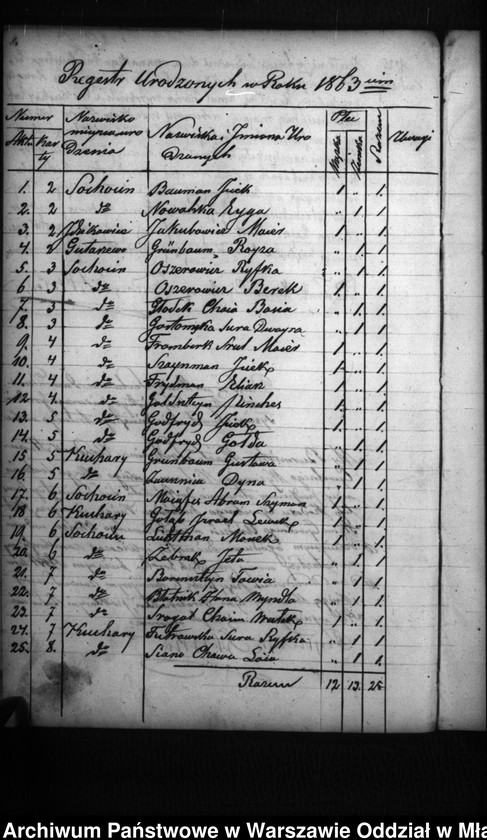 Regestr Urodzonych w Roku 1863 im
Numer Nazwisko Nazwiska i Imiona Uro Płci Razem Uwagi
Aktu Kar miejsca uro dzonych Męzka Żeńska
ty dzenia
1. 2 Sochocin Bauman Icek 1 " 1.
2. 2 do Nowalska " 1 1.
3. 2 Jakubowicz Maier 1 " 1.
4. 2 Gutarzewo Grünbaum Royza " 1 1.
5. 3 Sochocin Oszerowicz Ryfka " 1 1.
6 3 do Oszerowicz Berek 1 " 1.
7. 3 do Chaia Basia " 1 1.
8. 3 do Gostomska Sura Dwoyra " 1 1.
9. 4 do Srul Maier 1 " 1.
10. 4 do Szaynman Icek 1 " 1.
11. 4 do Frydman Eliasz 1 " 1.
12 4 do Goldszteyn Pinches 1 " 1.
13. 5 do Godfryd Icek 1 " 1.
14. 5 do Godfryd Golda " 1 1.
15 5 Kuchary Grünbaum Gustawa " 1 1.
16. 5 do Dyna " 1 1.
17. 6 Sochocin Abram Szyman 1 " 1.
18 6 Kuchary Gołąb Izrael Lewek 1 " 1.
19. 6 Sochocin Monek 1 " 1.
20. 6 do Żebrak Jeta " 1 1.
21. 7 do Borenszteyn " 1 1.
22. 7 do Błatnik Hana Myndla " 1 1.
23. 7 do Chaim 1 " 1.
24. 7 Kuchary Sura Ryfka " 1 1.
25. 8. do Siano Chawa Laia " 1 1.
Razem 12 13. 25
Archiwum Państwowe w Warszawie Oddział w Mła